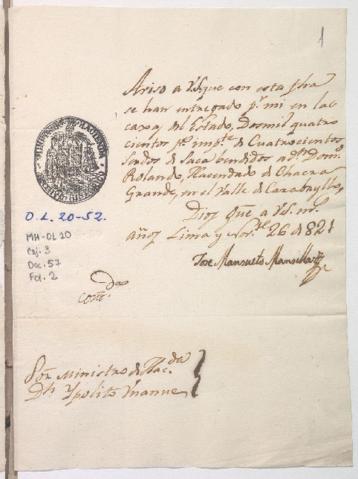 1
Aviso a VS. que con esta fha
se han entregado pr. mi en las
caxas del Estado, Dosmil quatro
cientos ps. impte. de Cuatrocientos
de Saca vendidos a dn. Domo.
Rolando, Hacendado de Chacra
Grande, en el Valle de Carabayllo,
Dios gue. a VS. ms.
años Lima y Nove. 26 de 821
Jose Mansueto Mansilla
O.L. 20-52.
MH-OL 20
Caj. 3
Doc. 57
Fol. 2
Contdo.
Sor. Ministro de Hacda.
Dn. Ypolito Unanue